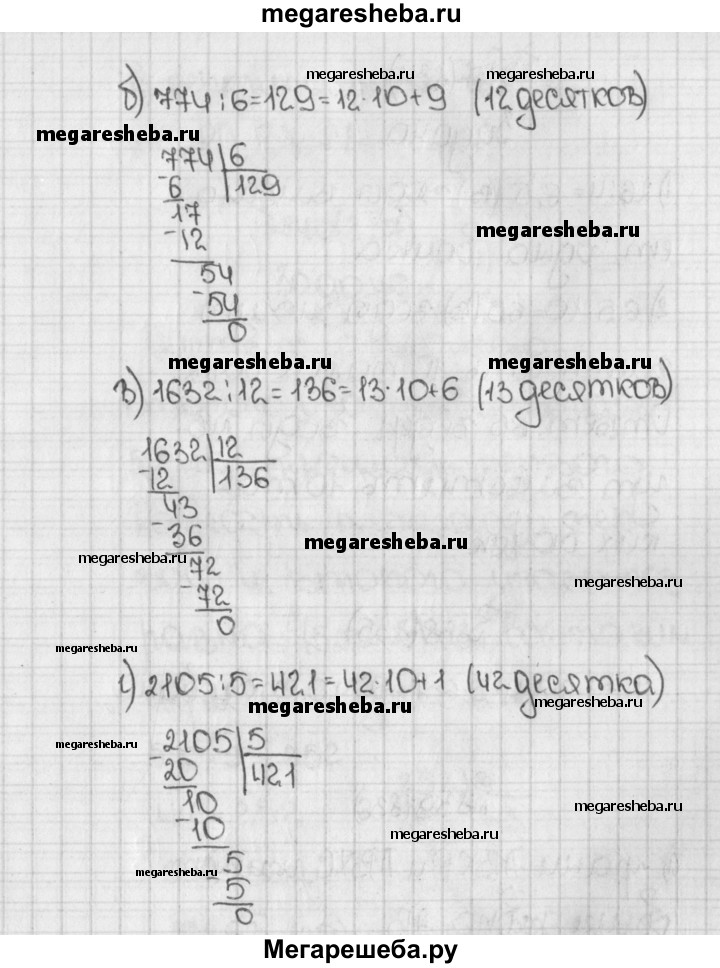 megaresheba.ru
megaresheba.ru megaresheba.ru
б) 774:6=129=12·10+9 (12 десятков)
megaresheba.ru
774 6
-6 129
17
-12
megaresheba.ru
54
-54
0
megaresheba.ru megaresheba.ru
в) 1632:12=136=13·10+6 (13 десятков)
1632 12
-12 136
43
-36
megaresheba.ru
megaresheba.ru
72
megaresheba.ru
-72
0
megaresheba.ru
г) 2105:5=421=42·10+1 (42 десятка)
megaresheba.ru megaresheba.ru
megaresheba.ru
-2105 5
20 421
10
megaresheba.ru
-10
megaresheba.ru
5
megaresheba.ru
-5
0
Мегарешеба.ру